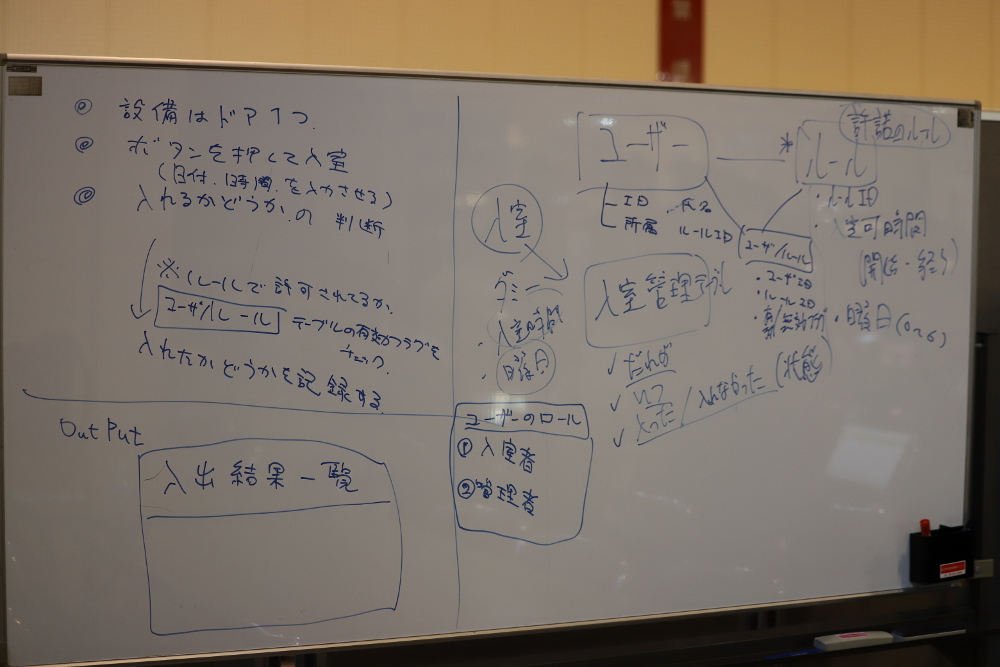 ◎ 設備はドア1つ.
◎ ボタンを押して入室
(日付.時間.を入力させる)
◎ 入れるかどうか.の判断
※ ルールで許可されてるか.
ユーザ/ルール テーブルの有効フラグを
チェック.
入れたかどうかを記録する.
OutPut
入出結果一覧
入室
入室時間
・曜日
ユーザーのロール
① 入室者
② 管理者
ユーザー
ID ・氏名
所属 ルールID
許諾のルール
* ルール
・ルールID
・入室可時間
(開始・終了)
・曜日(0~6)
ユーザ/ルール
・ユーザID
・ルールID
入室管理
✓ だれが
✓ いつ
✓ 入った/入れなかった(状態)